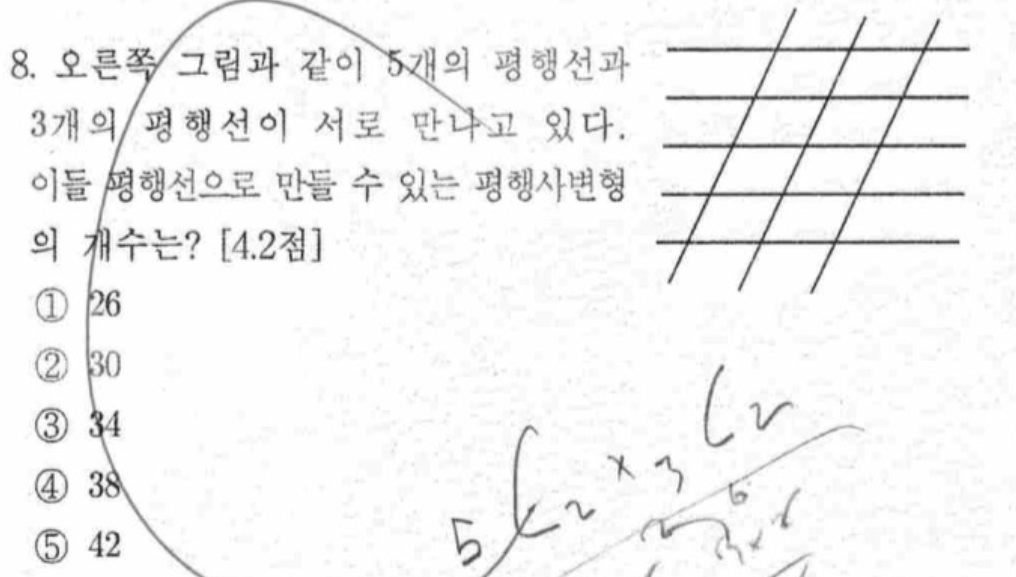 8. 오른쪽 그림과 같이 5개의 평행선과
3개의 평행선이 서로 만나고 있다.
이들 평행선으로 만들 수 있는 평행사변형
의 개수는? [4.2점]
① 26
② 30
③ 34
④ 38
⑤ 42
5C2 × 3C2